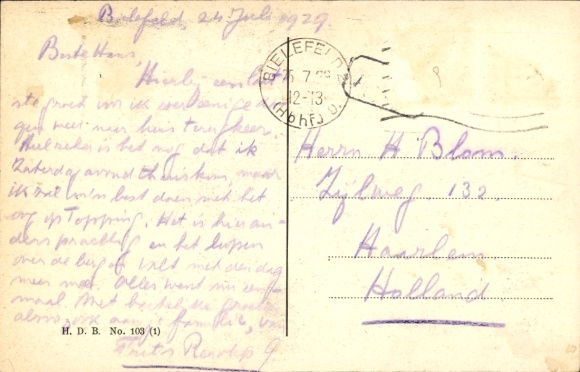 Bielefeld, 24 Juli 1929.
Beste Hans,
Hierbij een laat
ste groet voor ik over eenige da
gen weer naar huis terugkeer.
Heel zeker is het nog dat ik
Zaterdagavond thuiskom, maar
ik zal m'n best doen met het
oog op Topping. Het is hier an-
ders prachtig en het loopen
over de berg of valt met den dag
meer mee. Alles went nu een
maal. Met hartelijke groeten
alsook aan je familie, van
Frits
BIELEFELD 2
25.7.29
12-13
(Hbhf)
Herrn H Blom.
Zijlweg 132.
Haarlem
Holland.
H. D. B. No. 103 (1)